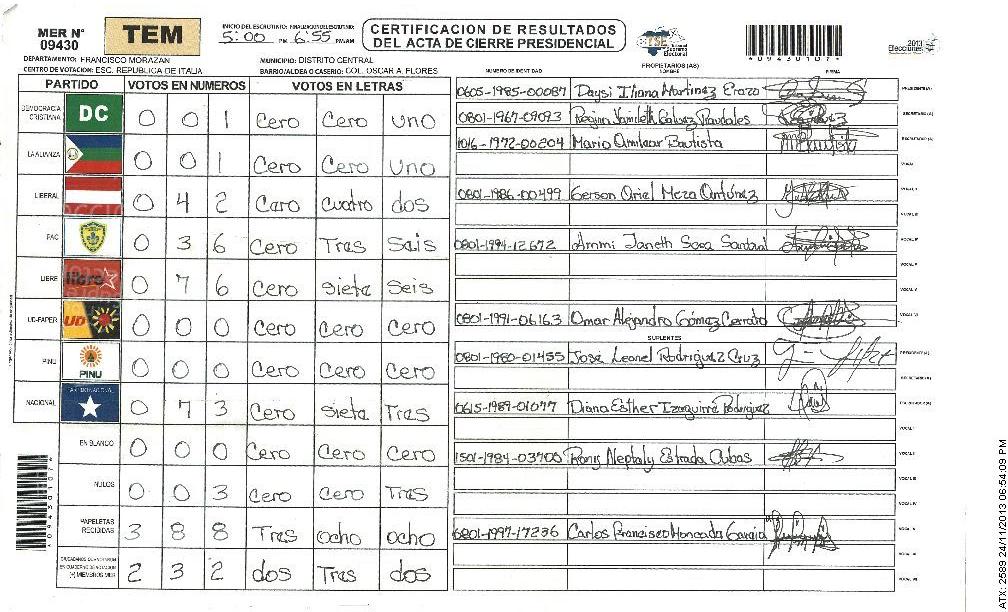 MER N° 09430
TEM
INICIO DEL ESCRUTINIO: FINALIZACION DEL ESCRUTINIO:
5:00 PM 6:55 PM/AM
CERTIFICACION DE RESULTADOS
DEL ACTA DE CIERRE PRESIDENCIAL
TSE
Tribunal Supremo Electoral
2013
Elecciones
*09430107*
DEPARTAMENTO: FRANCISCO MORAZAN
MUNICIPIO: DISTRITO CENTRAL
CENTRO DE VOTACION: ESC. REPUBLICA DE ITALIA
BARRIO/ALDEA O CASERIO: COL. OSCAR A. FLORES
PARTIDO VOTOS EN NUMEROS VOTOS EN LETRAS
DEMOCRACIA CRISTIANA DC 0 0 1 Cero Cero uno
LA ALIANZA 0 0 1 Cero Cero Uno
LIBERAL 0 4 2 Cero Cuatro dos
PAC 0 3 6 Cero Tres Seis
LIBRE libre 0 7 6 Cero siete Seis
UD-FAPER UD 0 0 0 Cero Cero Cero
PINU PINU 0 0 0 Cero Cero Cero
NACIONAL 0 7 3 Cero siete Tres
EN BLANCO 0 0 0 Cero Cero Cero
NULOS 0 0 3 Cero Cero Tres
PAPELETAS RECIBIDAS 3 8 8 Tres ocho ocho
(+) MIEMBROS MER 2 3 2 dos Tres dos
NUMERO DE IDENTIDAD
PROPIETARIOS (AS)
NOMBRE
FIRMA
0605-1985-00087 Daysi Iliana Martinez Erazo PRESIDENTE(A)
0801-1967-09093 Regina Yamileth Galvez Raudales SECRETARIO(A)
1016-1972-00204 Mario Amilcar Bautista ESCRUTADOR(A)
0801-1986-00499 Gerson Oriel Meza Antúnez
0801-1994-12672 Ammi Janeth Sosa
0801-1991-06163 Omar Alejandro Gómez Cerrato
SUPLENTES
0801-1980-01455 Jose Leonel Rodriguez Cruz PRESIDENTE(A)
SECRETARIO(A)
0615-1989-01077 Diana Esther Izaguirre Rodriguez ESCRUTADOR(A)
1501-1984-03700 Ronis Neptaly Estrada Cubas
0801-1997-17236 Carlos Francisco Moncada Garcia
ATX-2589 24/11/2013 06:54:09 PM